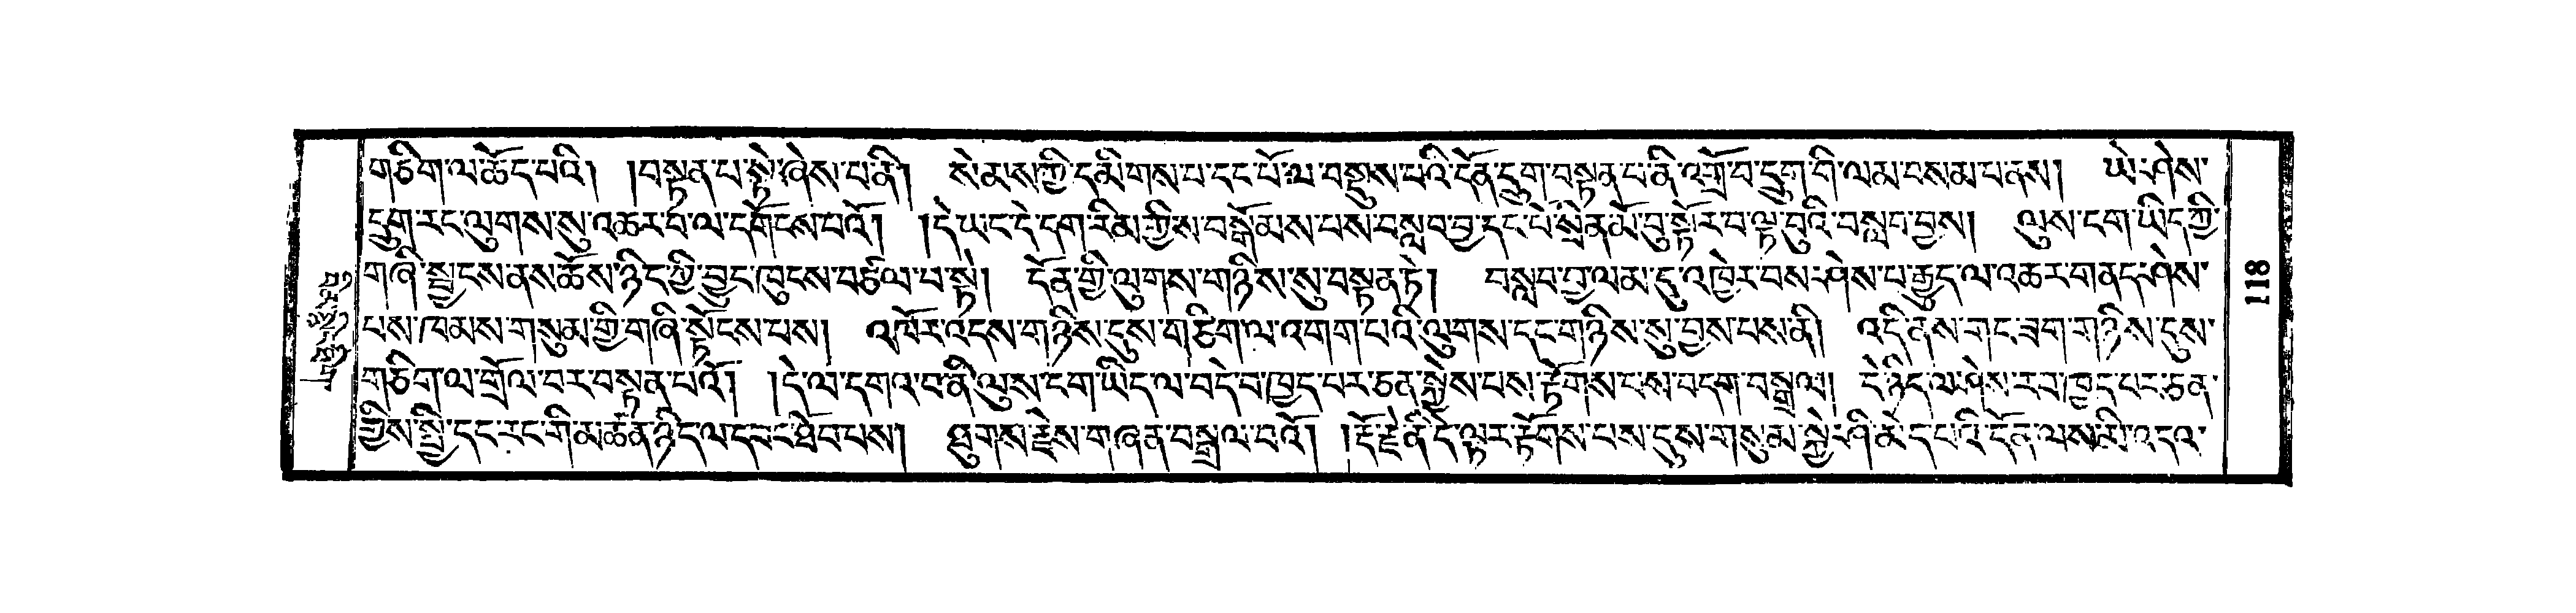 གཅིག་ལ་ཆོད་པའི། །བསྟན་པ་སྟེ་ཞེས་པ་ནི། སེམས་ཀྱི་དམིགས་པ་དང་པོ་ལ་བསྡུས་པའི་དོན་དྲུག་བསྟན་པ་ནི་འགྲོ་བ་དྲུག་གི་ལམ་ངས་མ་བནས། ཡེ་ཤེས་
དྲུག་རང་ལུགས་སུ་འཆར་བ་ལ་དགོངས་པའོ། །དེ་ཡང་དེ་དག་རིམ་གྱིས་བསྒོམས་པས་བསླབ་བྱ་དང་པོ་སྲིན་མོ་བུ་སྟོར་བ་ལྟ་བུའི་བསླབ་བྱས། ལུས་ངག་ཡིད་ཀྱི་
གཞི་སྦྱངས་ནས་ཆོས་ཉིད་ཀྱི་བྱུང་ཁུངས་བཙལ་པ་སྟེ། དོན་གྱི་ལུགས་གཉིས་སུ་བསྟན་ཏེ། བསླབ་བྱ་ལམ་དུ་འཁྱེར་བས་ཤེས་པ་རྒྱུད་ལ་འཆར་གནད་ཤེས་
པས་ཁམས་གསུམ་གྱི་གཞི་སྟོངས་པས། འཁོར་འདས་གཉིས་དུས་གཅིག་ལ་འགག་པའི་ལུགས་དང་གཉིས་སུ་བྱས་པས་ནི། འདི་ནས་གང་ཟག་གཉིས་དུས་
གཅིག་ལ་གྲོལ་བར་བསྟན་པའོ། །དེ་ལ་དགའ་བ་ནི་ལུས་ངག་ཡིད་ལ་བདེ་བ་ཁྱད་པར་ཅན་སྐྱེས་པས་རྟོགས་པས་བདག་བསྒྲལ། དེ་ཉིད་ལ་ཤེས་རབ་ཁྱད་པར་ཅན་
གྱིས་སྤྱི་དང་རང་གི་མཚན་ཉིད་ལ་དཔང་ཐེབ་པས། ཐུགས་རྗེས་གཞན་བསྒྲལ་བའོ། །རྡོ་རྗེ་ནི་དེ་ལྟར་རྟོགས་པས་དུས་གསུམ་སྐྱེ་ཤི་མེད་པའི་དོན་ལས་མི་འདའ་
118